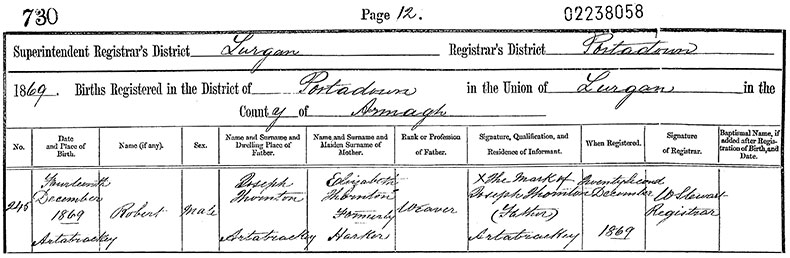 730 Page 12. 02238058
Superintendent Registrar's District Lurgan Registrar's District Portadown
1869. Births Registered in the District of Portadown in the Union of Lurgan in the
County of Armagh
No. Date and Place of Birth. Name (if any). Sex. Name and Surname and Dwelling Place of Father. Name and Surname and Maiden Surname of Mother. Rank or Profession of Father. Signature, Qualification, and Residence of Informant. When Registered. Signature of Registrar. Baptismal Name, if added after Registration of Birth, and Date.
245 Fourteenth December 1869 Artabrackey Robert Male Joseph Thornton Artabrackey Elizabeth Thornton Formerly Harker Weaver X The Mark of Joseph Thornton (Father) Artabrackey Twenty Second December 1869 W Stewart Registrar